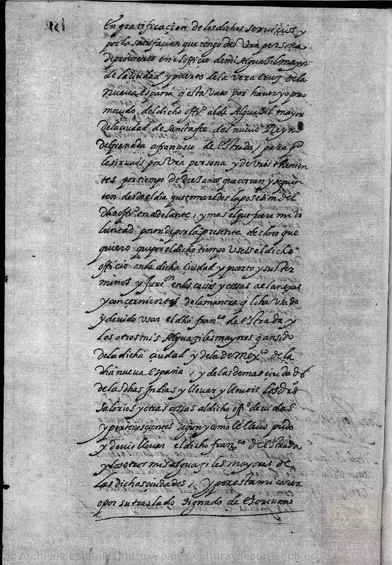 En gratificacion de los dichos servicios y
por la satisfacion que tengo de vra persona
de proveeros en el officio de mi Alguazil mayor
de la ciudad y puerto de la Vera Cruz de la
nueva España q esta vaco por haver yo pro
movido del dicho offo al de Alguazil mayor
de la ciudad de Santa fee del nuevo Reyno
de Granada a francisco de Estrada, para q
le sirvais por vra persona y de vros thenien
tes por tiempo de diez años que corran y se quen
ten desde el dia que tomardes la posesion del
dho offo en adelante, y mas el que fuere mi vo
luntad por ende por la presente declaro que
quiero que por el dicho tiempo useis el dicho
officio en la dicha ciudad y puerto y sus ter
minos y juron en los casos y cosas a el anejas
y concernientes de la manera q lo ha usado
y devido usar el dho franco de Estrada y
los otros mis Alguaziles mayores q an sido
de la dicha ciudad y de la de Mexco de la
dha nueva España, y de las demas ciudades
de las dhas Indias y llevar y lleveis los dros
salarios y otras cossas al dicho offo devidas
y pertenecientes segun y como le llevo pudo
y devio llevar el dicho franco de Estrada
y los otros mis alguaziles mayores de
las dichas ciudades, y por esta mi carta
o por su traslado signado de escrivano